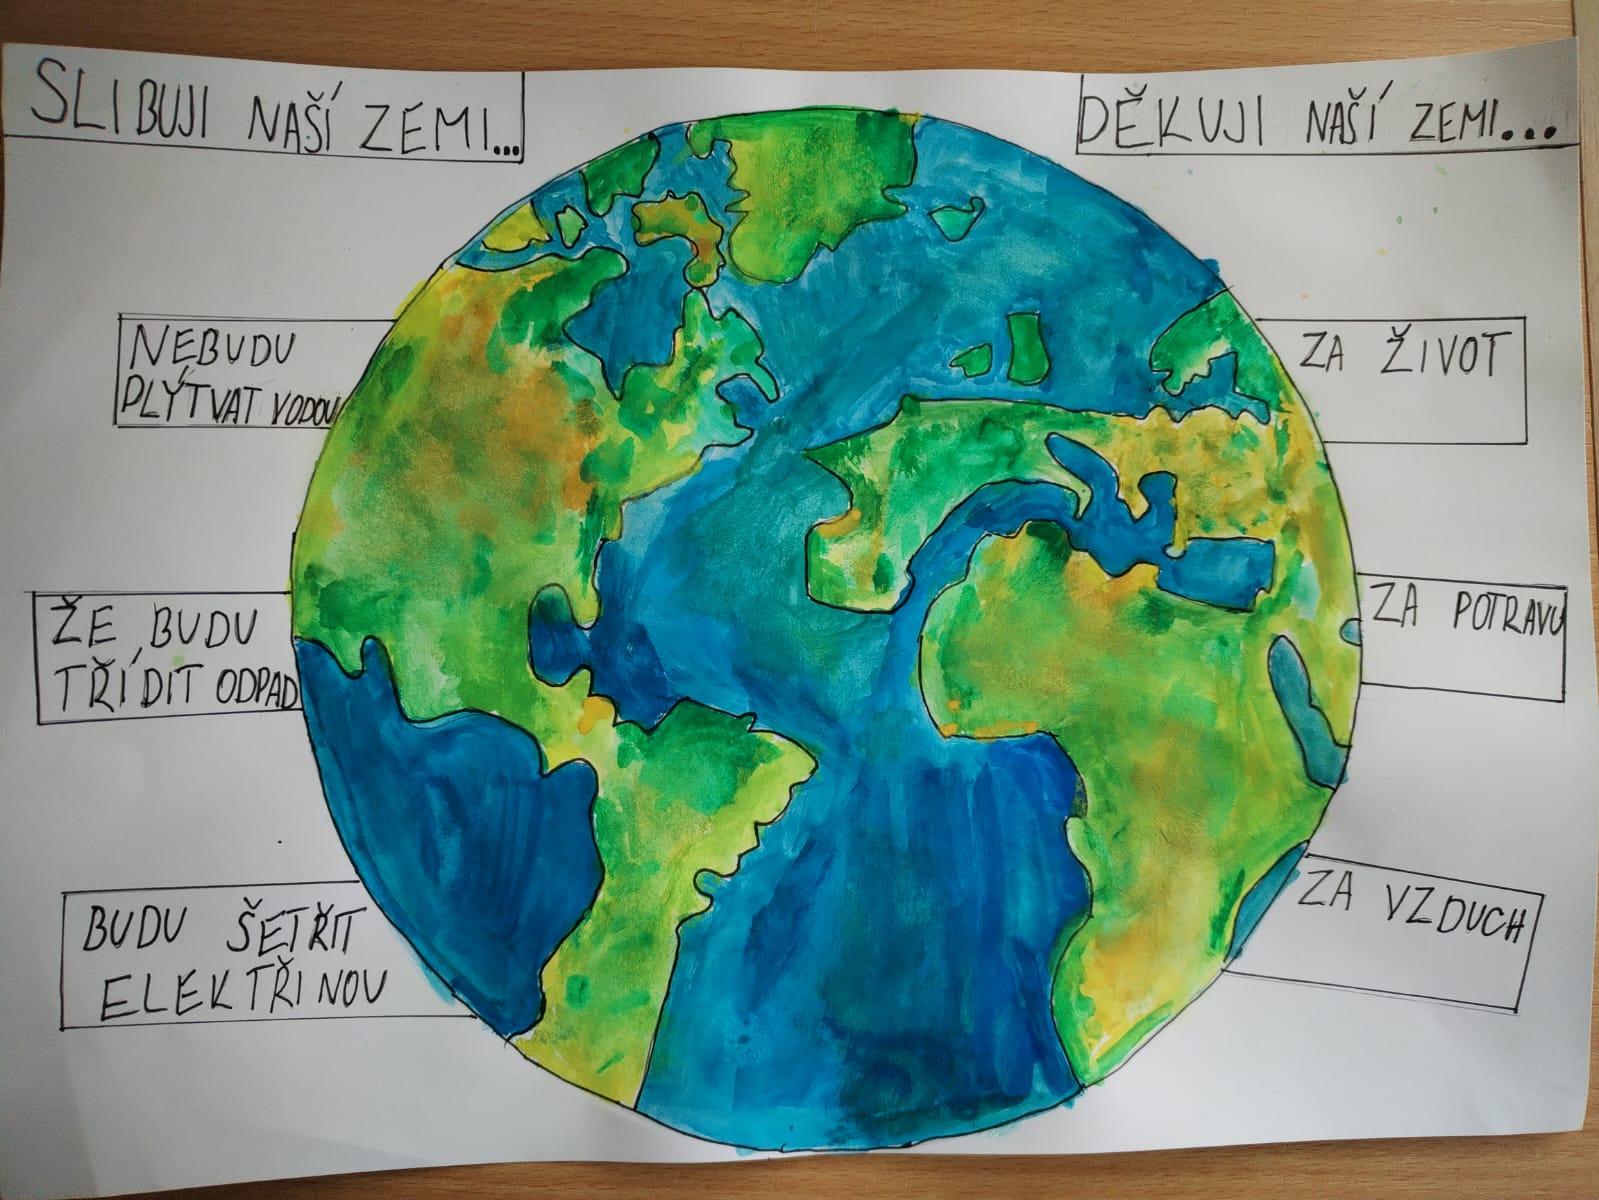 SLIBUJI NAŠÍ ZEMI...
NEBUDU
PLÝTVAT VODOU
ŽE BUDU
TŘÍDIT ODPAD
BUDU ŠETŘIT
ELEKTŘINOU
DĚKUJI NAŠÍ ZEMI...
ZA ŽIVOT
ZA POTRAVU
ZA VZDUCH